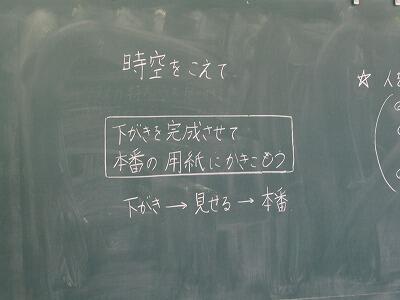 時空をこえて
下がきを完成させて
本番の用紙にかきこもう
下がき→見せる→本番
☆ 人を